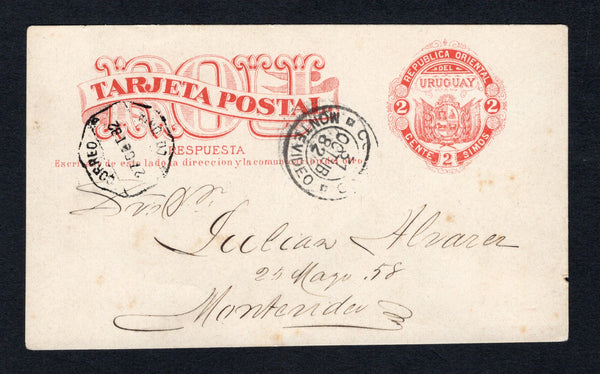 TARJETA POSTAL
RESPUESTA
Escríbase de este lado la direccion y la comunicacion del otro
REPUBLICA ORIENTAL
DEL
URUGUAY
2 2
CENTE 2 SIMOS
CORREO
MONTEVIDEO
82
Julian Alvarez
25 Mayo 58
Montevideo